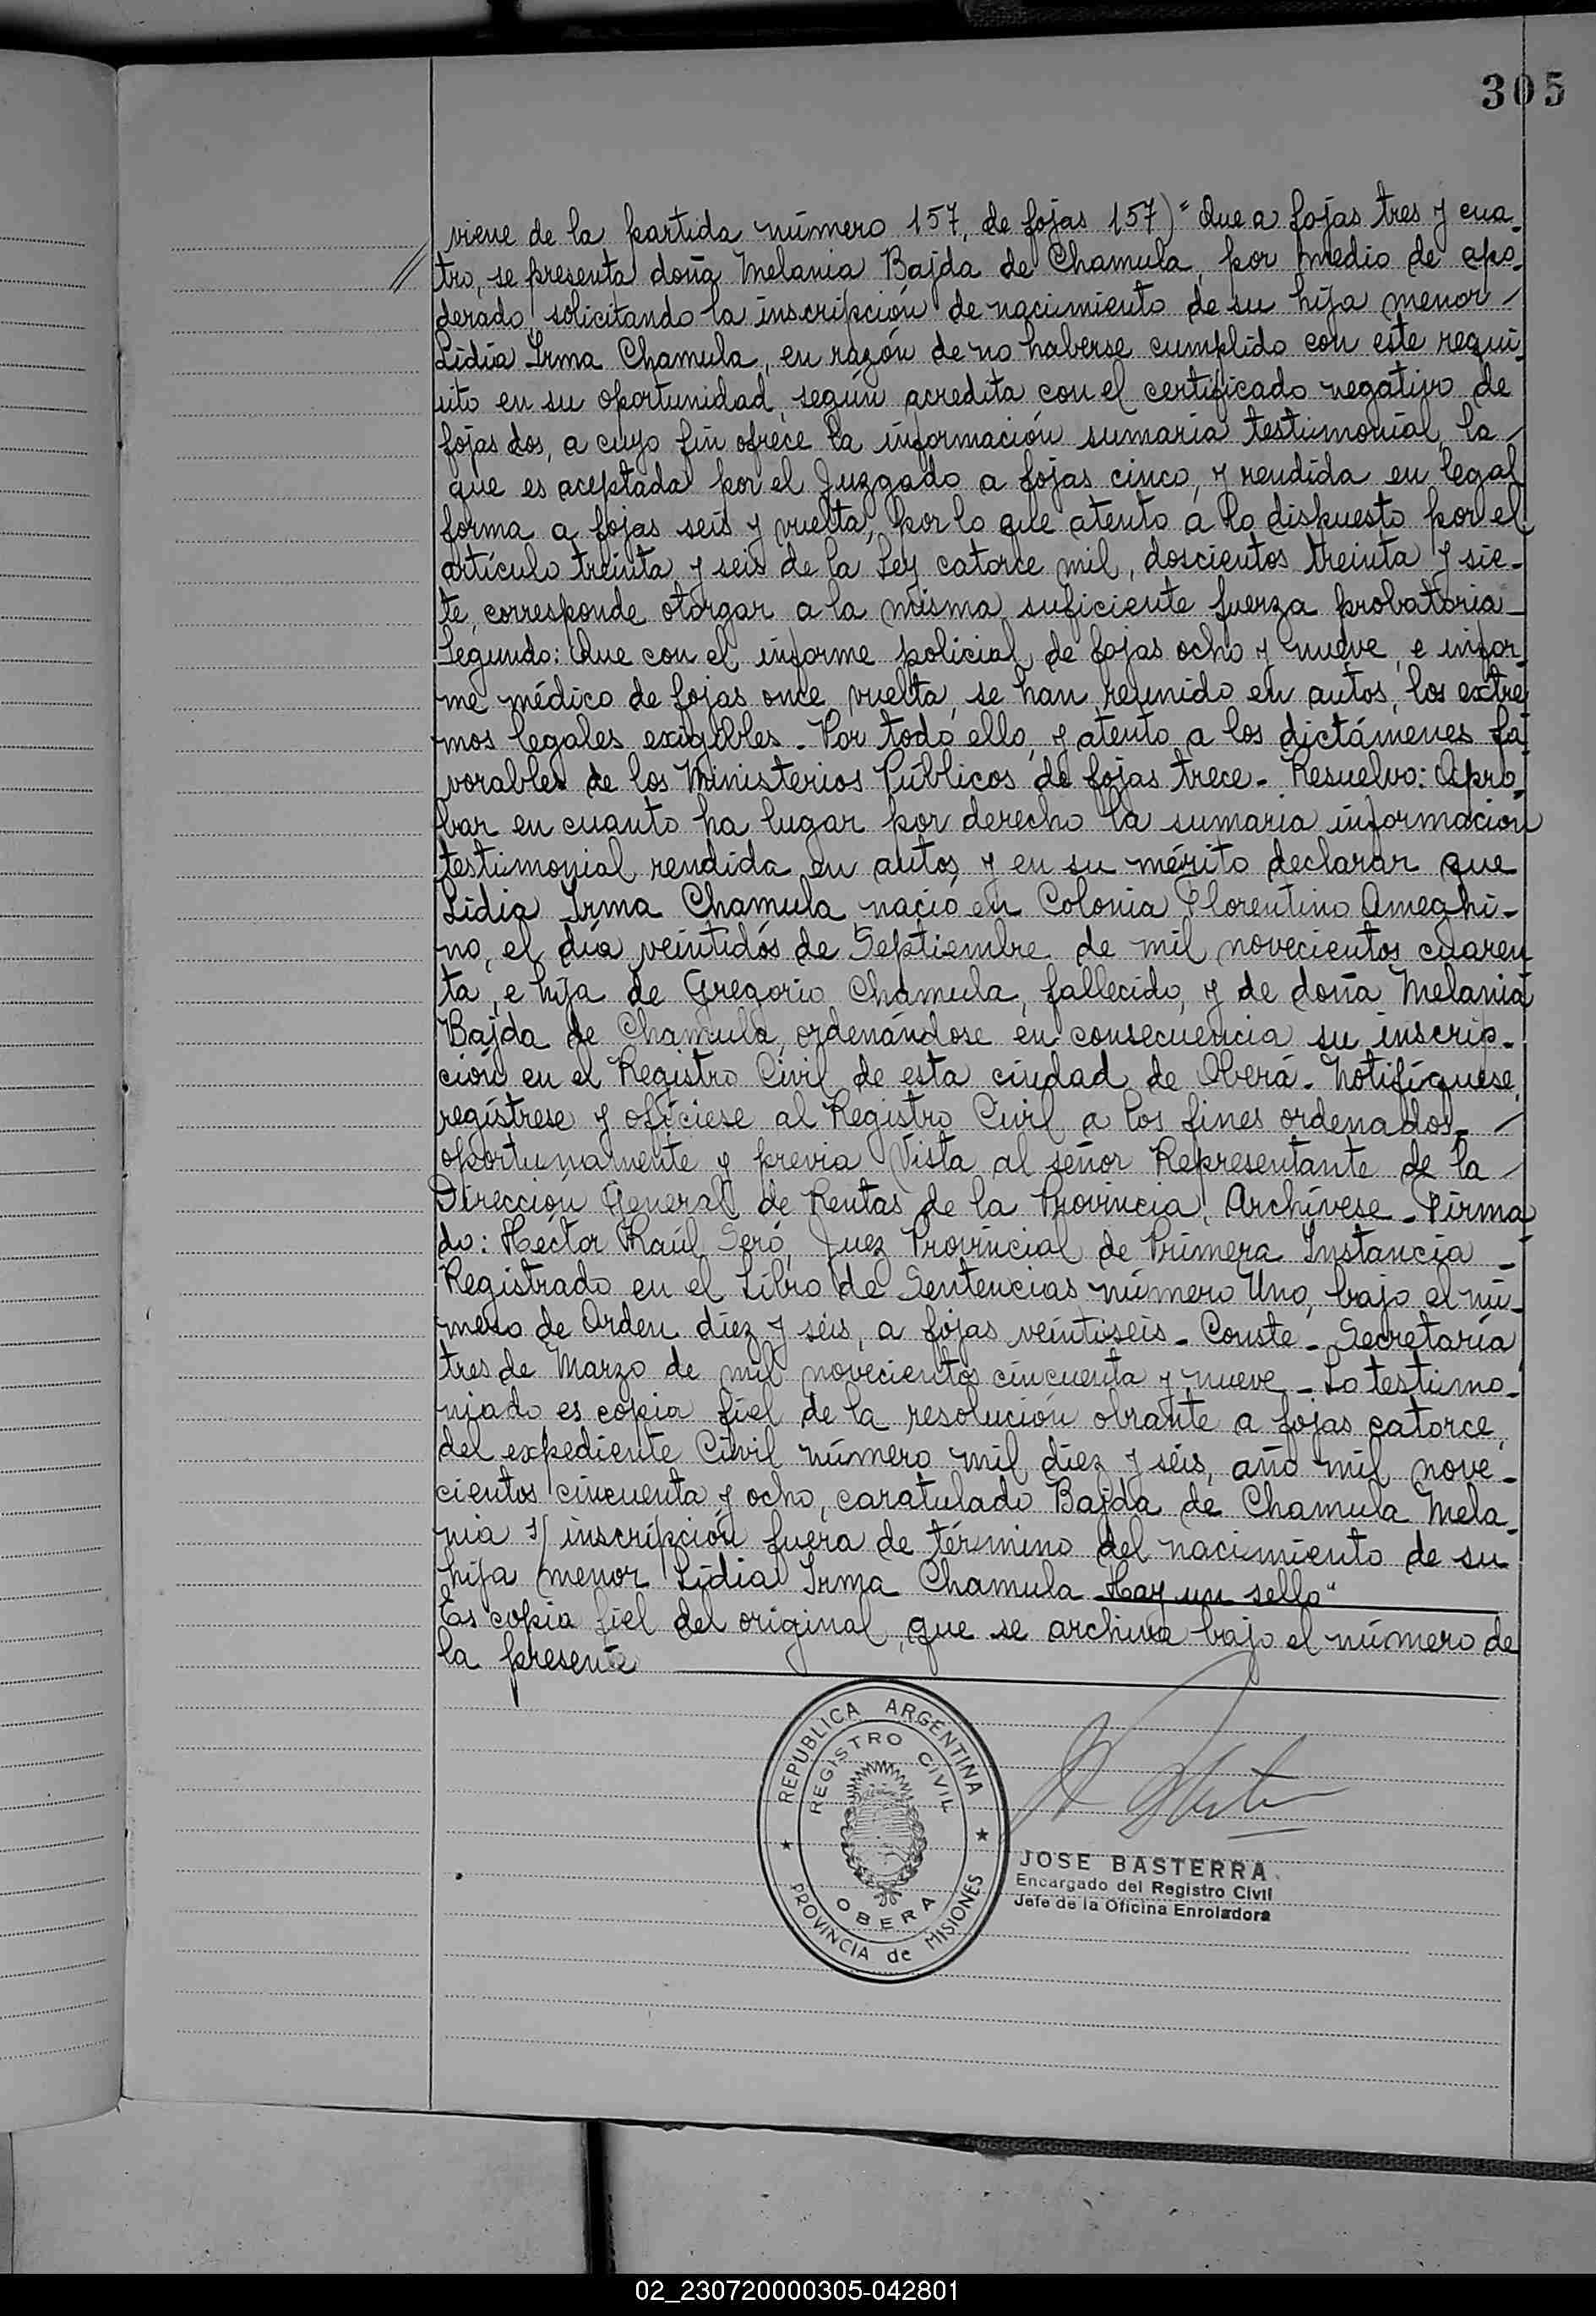 305
viene de la partida número 157, de fojas 157)" Que a fojas tres y cua-
// tro, se presenta doña Melania Bajda de Chamula, por medio de apo-
derado, solicitando la inscripción de nacimiento de su hija menor
Lidia Irma Chamula, en razón de no haberse cumplido con este requi-
sito en su oportunidad, según acredita con el certificado negativo de
fojas dos, a cuyo fin ofrece la información sumaria testimonial, la
que es aceptada por el Juzgado a fojas cinco, y rendida en legal
forma a fojas seis y vuelta, por lo que atento a lo dispuesto por el
artículo treinta y seis de la Ley catorce mil, doscientos treinta y sie-
te, corresponde otorgar a la misma suficiente fuerza probatoria_
Segundo: Que con el informe policial de fojas ocho y nueve, e infor-
me médico de fojas once vuelta, se han reunido en autos, los extre
mos legales exigibles_ Por todo ello, y atento a los dictámenes fa-
vorables de los Ministerios Públicos de fojas trece_ Resuelvo: Apro-
bar en cuanto ha lugar por derecho la sumaria información
testimonial rendida en autos y en su mérito declarar que
Lidia Irma Chamula nació en Colonia Florentino Ameghi-
no, el día veintidós de Septiembre de mil novecientos cuaren
ta, e hija de Gregorio Chamula, fallecido, y de doña Melania
Bajda de Chamula, ordenándose en consecuencia su inscrip-
ción en el Registro Civil de esta ciudad de Oberá_ Notifíquese,
regístrese y ofíciese al Registro Civil a los fines ordenados_
oportunamente y previa Vista al señor Representante de la
Dirección General de Rentas de la Provincia, Archívese_ Firma
do: Héctor Raúl Seró, Juez Provincial de Primera Instancia_
Registrado en el Libro de Sentencias número Uno, bajo el nú-
mero de Orden diez y séis, a fojas veintiseis_ Conste_ Secretaría
tres de Marzo de mil novecientos cincuenta y nueve_ Lo testimo-
niado es copia fiel de la resolución obrante a fojas catorce,
del expediente Civil número mil diez y séis, año mil nove-
cientos cincuenta y ocho, caratulado Bajda de Chamula Mela-
nia s/ inscripción fuera de término del nacimiento de su
hija menor Lidia Irma Chamula_Hay un sello"
Es copia fiel del original, que se archiva bajo el número de
la presente
REPUBLICA ARGENTINA
REGISTRO CIVIL
OBERA
PROVINCIA de MISIONES
JOSE BASTERRA
Encargado del Registro Civil
Jefe de la Oficina Enroladora
02_230720000305-042801